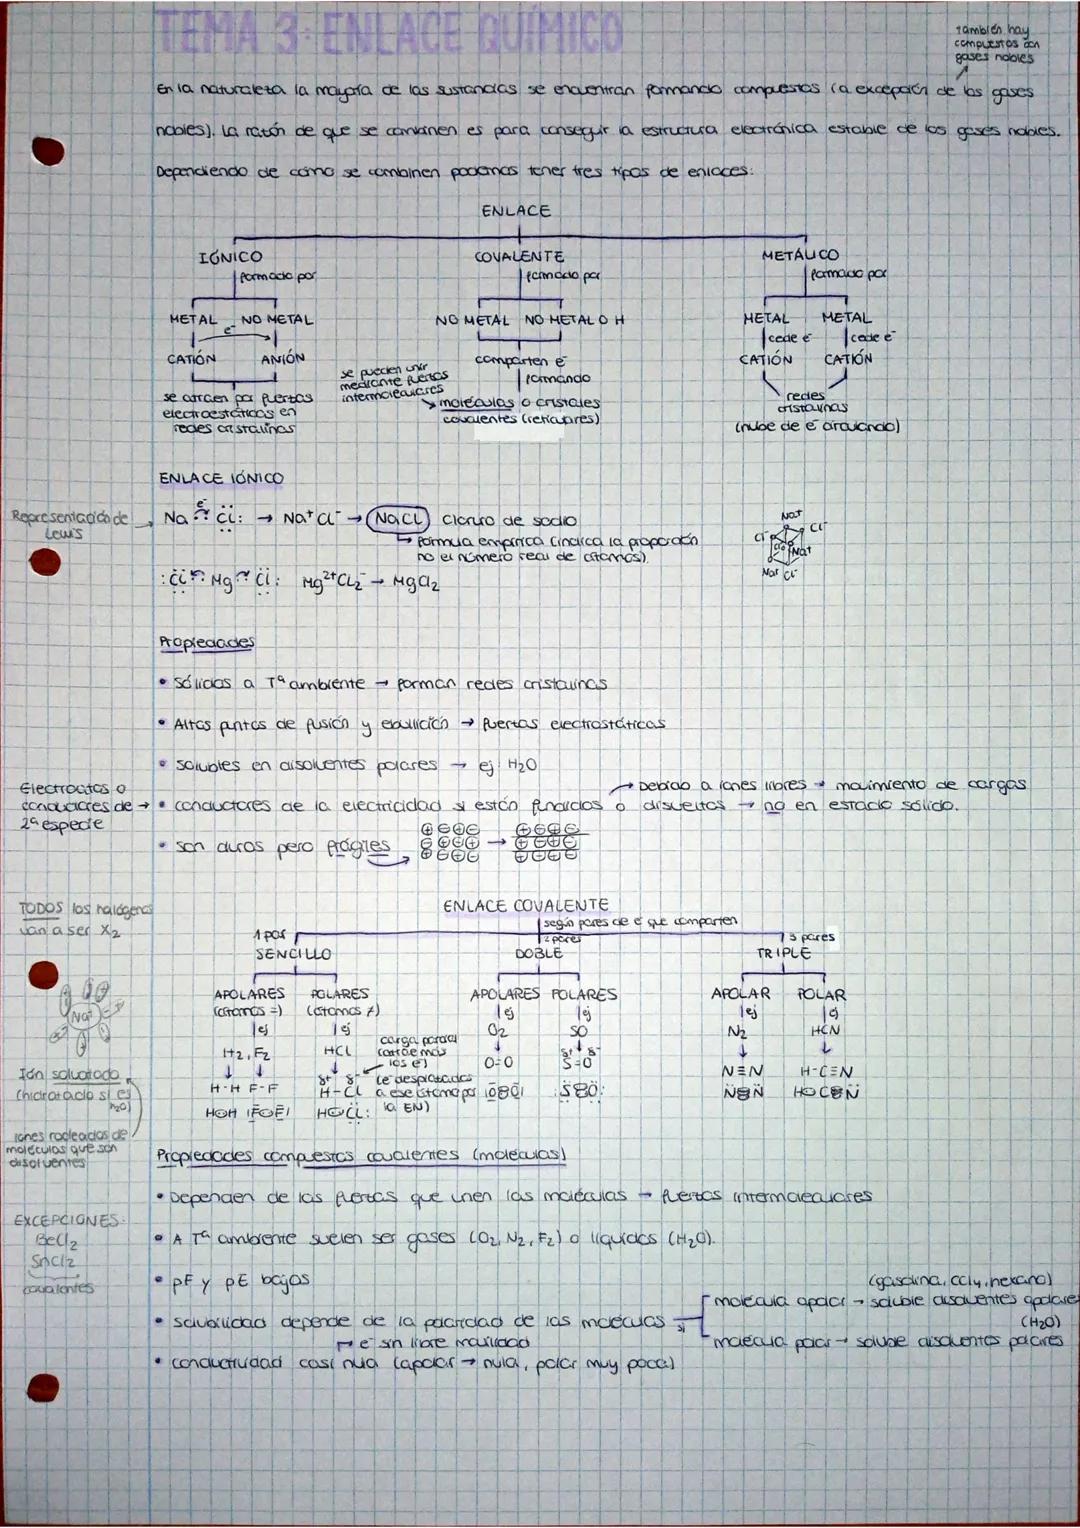 TEMA 3: ENLACE QUÍMICO
también hay
compuestos con
gases nobles
En la naturaleza la mayoría de las sustancias se encuentran formando compuestos (a excepción de los gases
nobles). La razón de que se combinen es para conseguir la estructura electrónica estable de los gases nobles.
Dependiendo de cómo se combinen podemos tener tres tipos de enlaces:
ENLACE
IÓNICO COVALENTE METÁLICO
formado por formado por formado por
METAL NO METAL NO METAL NO METAL O H METAL METAL
e⁻ cede e⁻ cede e⁻
CATIÓN ANIÓN comparten e⁻ CATIÓN CATIÓN
se atraen por fuerzas
electroestáticas en
redes cristalinas
se pueden unir
mediante fuerzas
intermoleculares
formando
moléculas o cristales
covalentes (reticulares)
redes
cristalinas
(nube de e⁻ circulando)
ENLACE IÓNICO
Representación de
Lewis
e⁻
Na Cl: → Na⁺Cl⁻ → NaCl Cloruro de sodio
↳ fórmula empírica (indica la proporción
no el número real de átomos).
Na⁺ Cl⁻
Cl⁻ Na⁺
Na⁺ Cl⁻
:Cl Mg Cl: Mg²⁺Cl₂⁻ → MgCl₂
Propiedades
• Sólidos a Tª ambiente → forman redes cristalinas
• Altos puntos de fusión y ebullición → fuerzas electrostáticas
• solubles en disolventes polares → ej: H₂O
Electrolitos o
conductores de →
2ª especie
→ Debido a iones libres → movimiento de cargas
• conductores de la electricidad si están fundidos o disueltos → no en estado sólido.
• son duros pero frágiles
⊕⊖⊕⊖ ⊕⊖⊕⊖
⊖⊕⊖⊕ → ⊕⊖⊕⊖
⊕⊖⊕⊖ ⊕⊖⊕⊖
TODOS los halógenos
van a ser X₂
ENLACE COVALENTE
según pares de e⁻ que comparten
1 par 2 pares 3 pares
SENCILLO DOBLE TRIPLE
APOLARES POLARES APOLARES POLARES APOLAR POLAR
(átomos =) (átomos ≠)
ej ej ej ej ej ej
H₂, F₂ HCl O₂ SO N₂ HCN
carga parcial
(atrae más
los e⁻)
(e⁻ desplazados
a ese átomo por
la EN)
δ⁺ δ⁻ δ⁺ δ⁻
H-H F-F H-Cl O=O S=O N≡N H-C≡N
Na⁺
Ión solvatado
(hidratado si es
H₂O)
iones rodeados de
moléculas que son
disolventes
Propiedades compuestos covalentes (moléculas)
• Dependen de las fuerzas que unen las moléculas → fuerzas intermoleculares
• A Tª ambiente suelen ser gases (O₂, N₂, F₂) o líquidos (H₂O).
EXCEPCIONES:
BeCl₂
SnCl₂
covalentes
• pF y pE bajos
• solubilidad depende de la polaridad de las moléculas si
(gasolina, CCl₄, hexano)
molécula apolar → soluble disolventes apolares
(H₂O)
molécula polar → soluble disolventes polares
→ e⁻ sin libre movilidad
• conductividad casi nula (apolar → nula, polar muy poca)